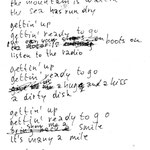 the mountain is
the sea has run dry
gettin' up
gettin' ready to go
boots on
listen to the radio
gettin' up
gettin' ready to go
a hug and a kiss
a dirty dish
gettin' up
gettin' ready to go
smile
it's many a mile